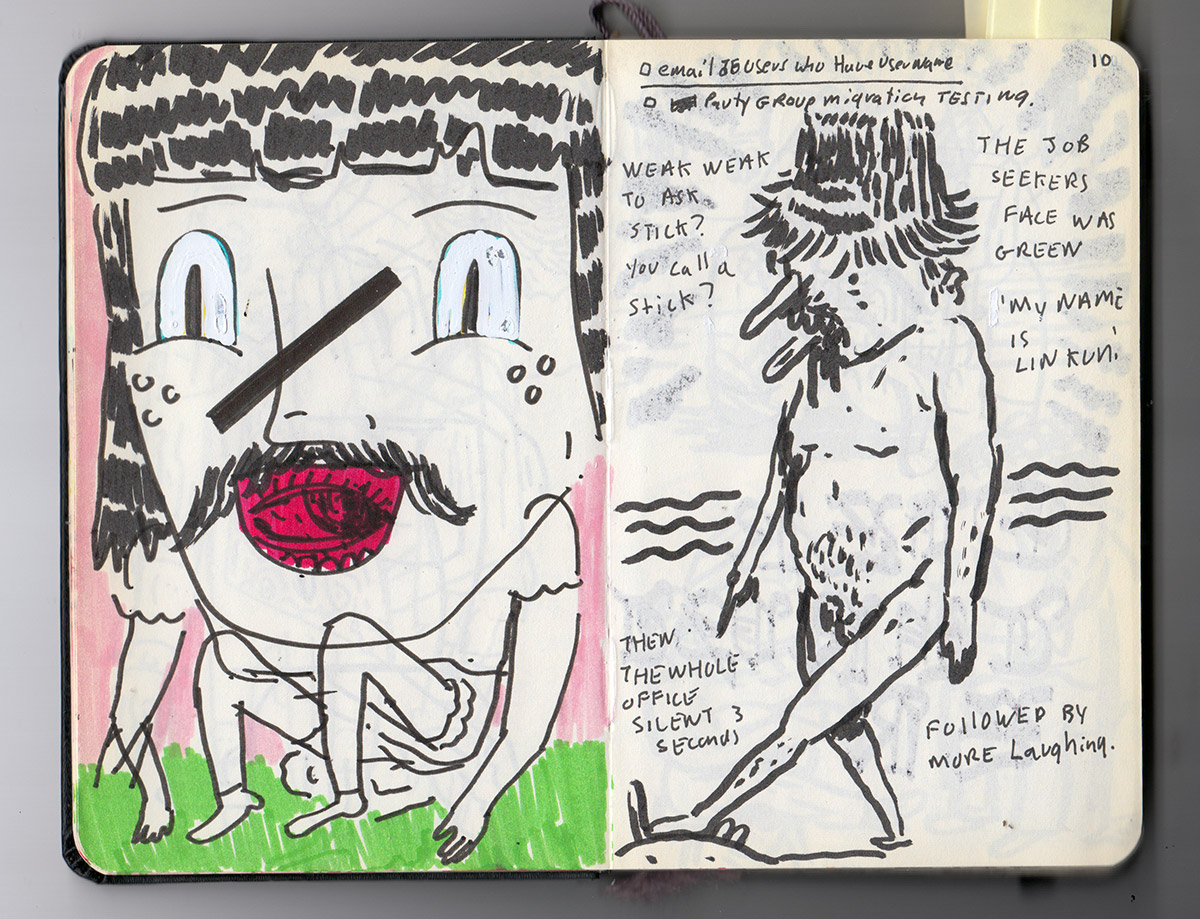 email 36 Users who Have Username
10
Party GROUP migration TESTING.
WEAK WEAK
TO ASK
STICK?
You call a
Stick?
THE JOB
SEEKERS
FACE WAS
GREEN
'MY NAME
IS
LIN KUN'
THEN
THE WHOLE
OFFICE
SILENT 3
SECONDS
FOLLOWED BY
MORE Laughing.